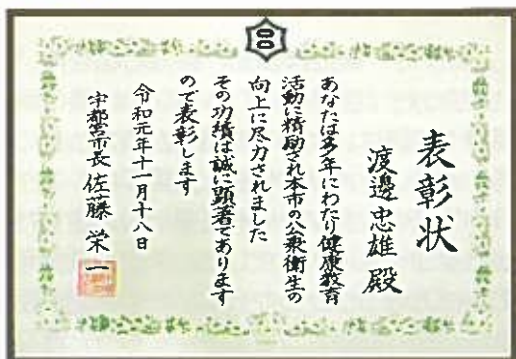 表彰状
渡邊忠雄殿
あなたは多年にわたり健康教育
活動に精励され本市の公衆衛生の
向上に尽力されました
その功績は誠に顕著であります
ので表彰します
令和元年十一月十八日
宇都宮市長 佐藤栄一